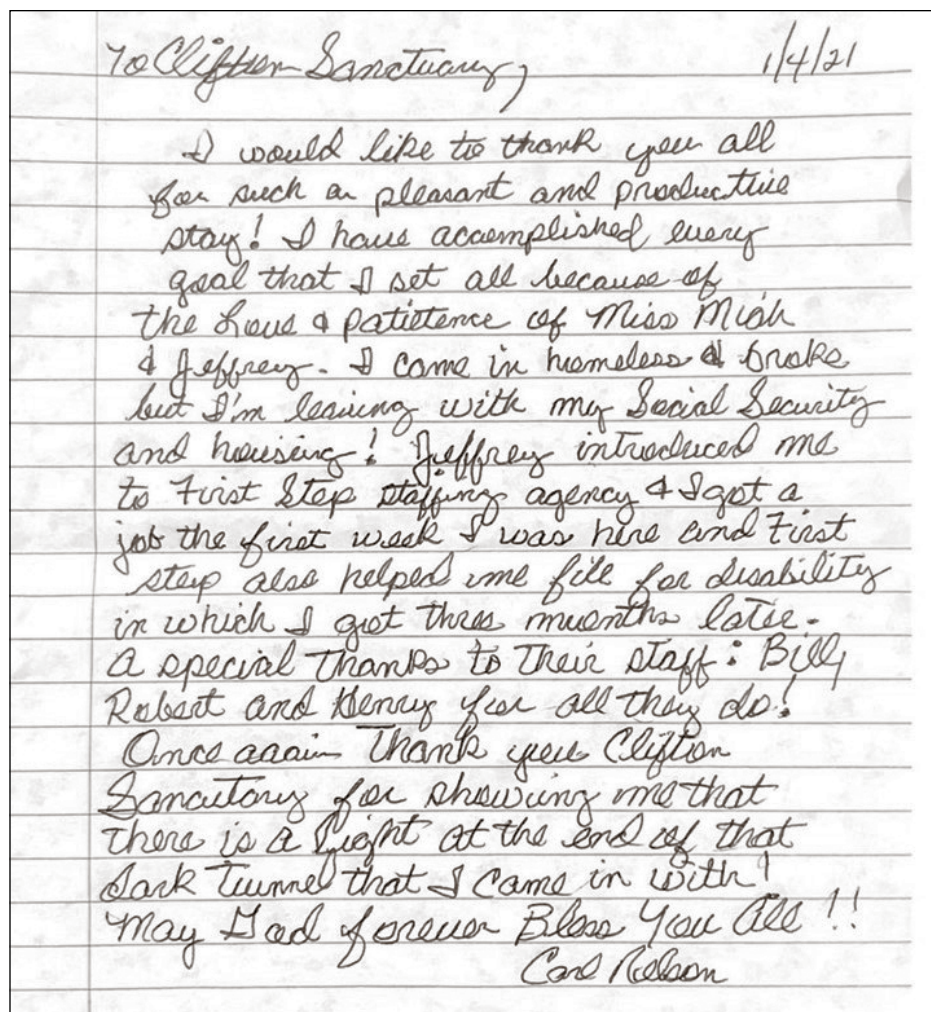 To Clifton Sanctuary, 1/4/21
I would like to thank you all
for such a pleasant and productive
stay! I have accomplished every
goal that I set all because of
the Love & patietence of Miss Miah
& Jeffrey. I came in homeless & broke
but I'm leaving with my Social Security
and housing! Jeffrey introduced me
to First Step staffing agency & I got a
job the first week I was here and First
step also helped me file for disability
in which I got three months later.
A special Thanks to Their staff: Billy
Robert and Henry for all they do!
Once again Thank you Clifton
Sancutory for showing me that
there is a Light at the end of that
dark Tunnel that I came in with!
May God forever Bless You All!!
Carl Nelson